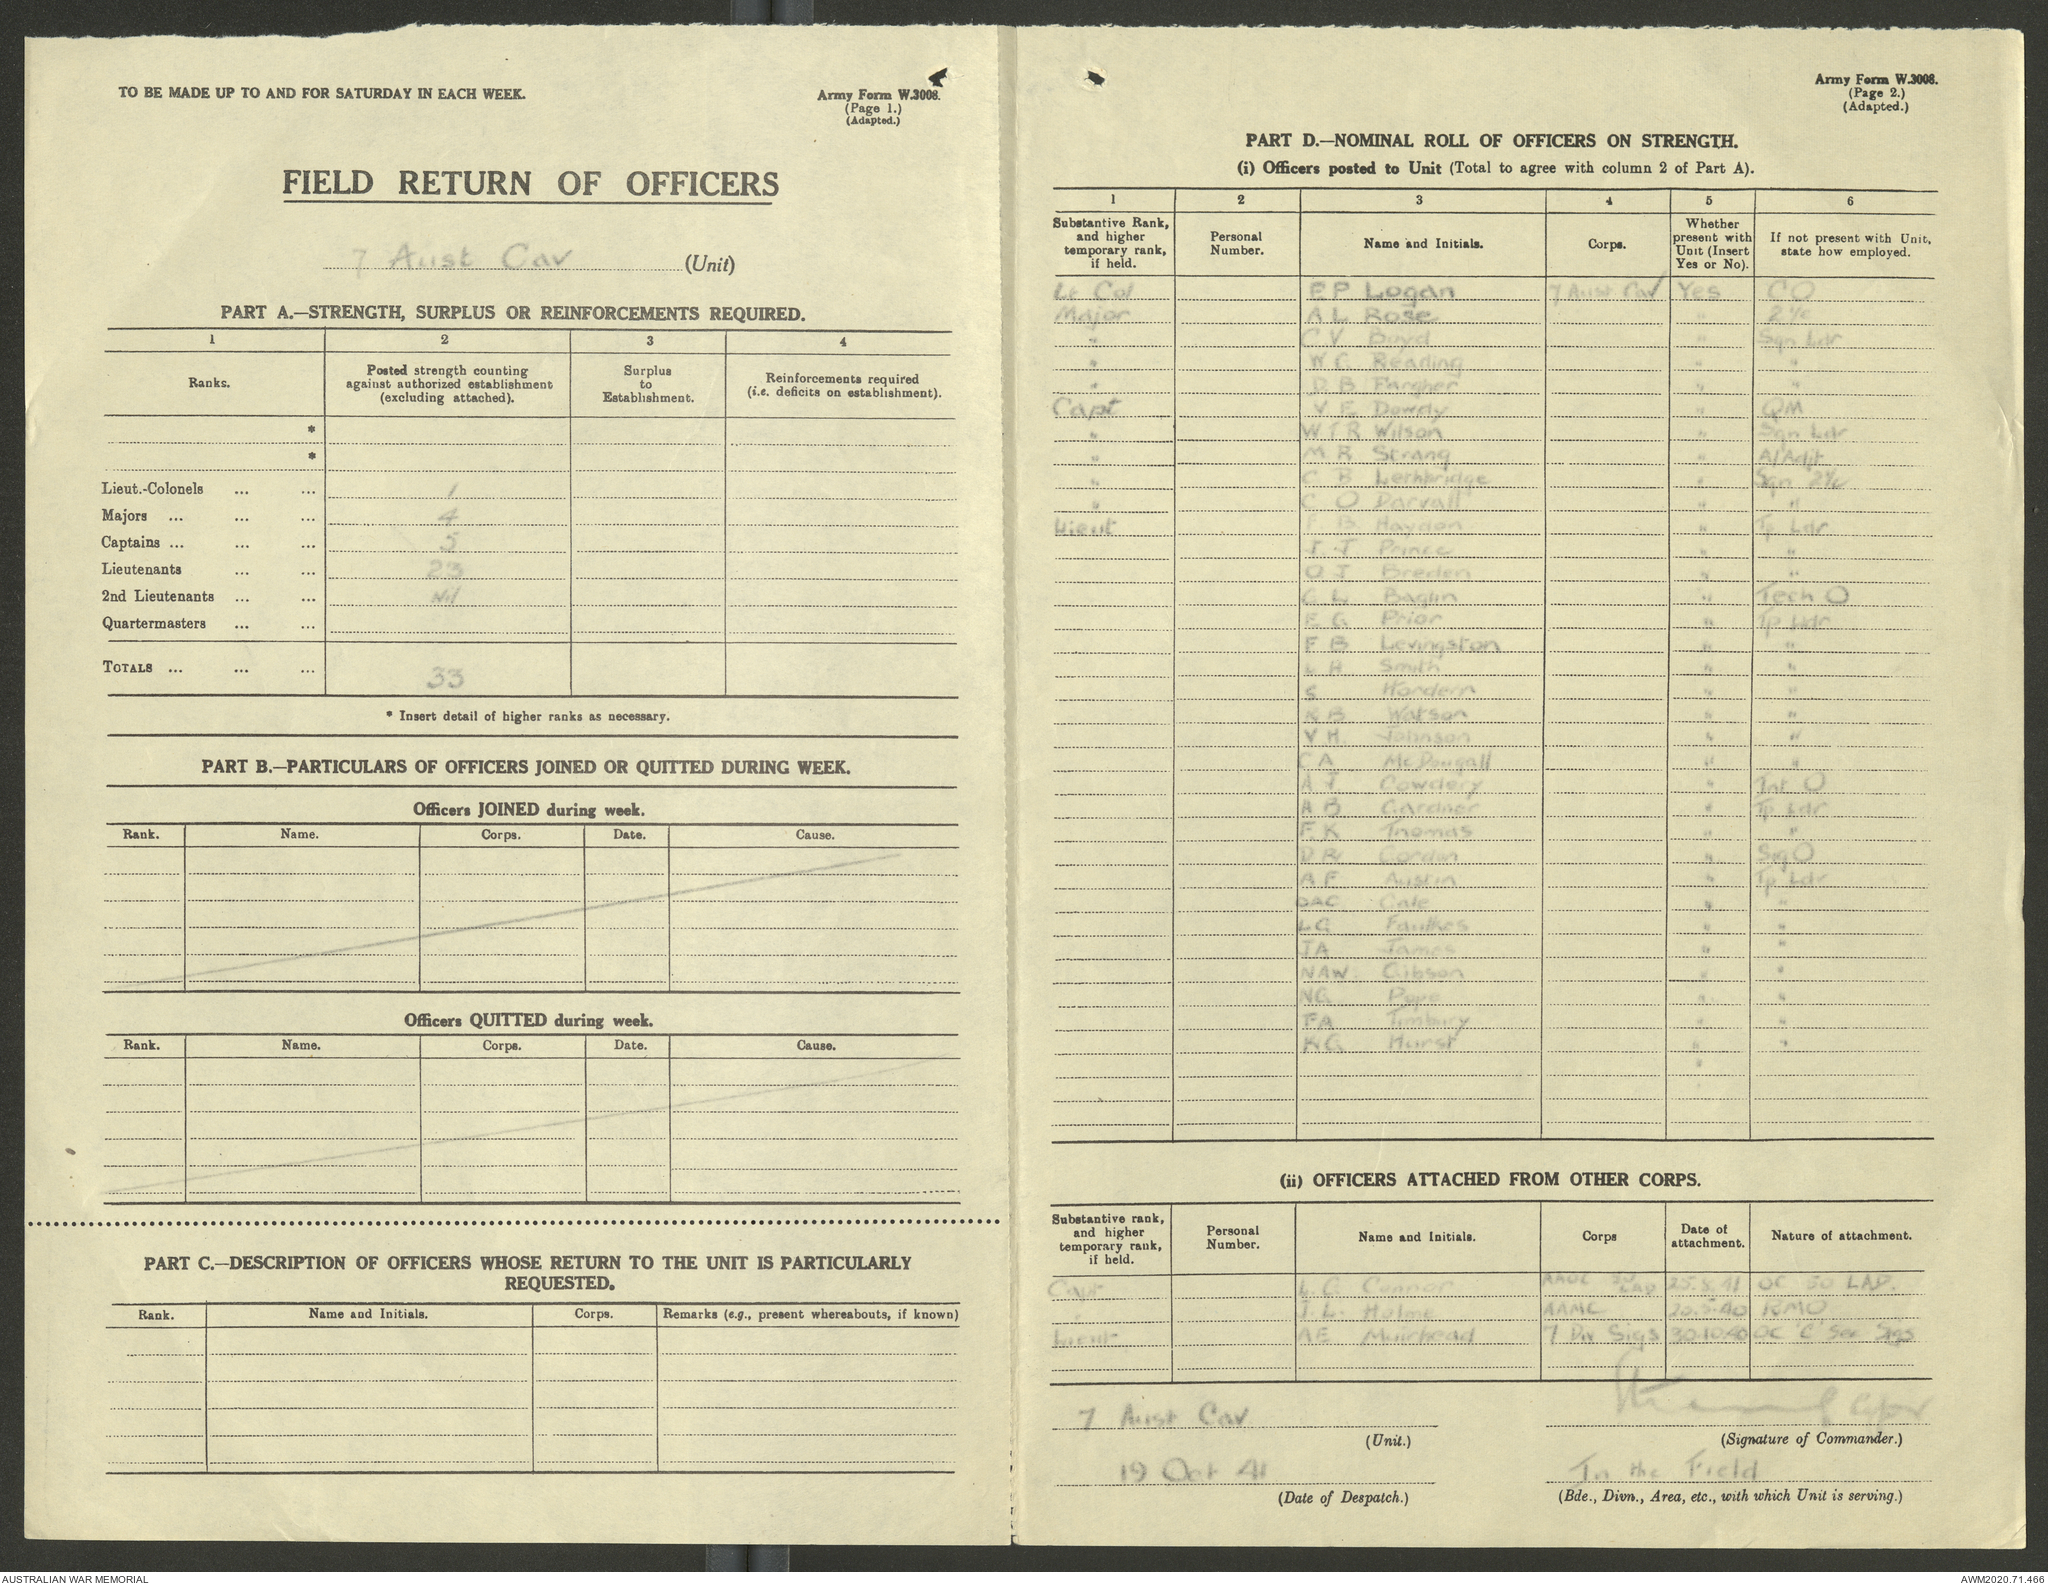 TO BE MADE UP TO AND FOR SATURDAY IN EACH WEEK.
Army Form W.3008.
(Page 1.)
(Adapted.)
FIELD RETURN OF OFFICERS
7 Aust Cav (Unit)
PART A.—STRENGTH, SURPLUS OR REINFORCEMENTS REQUIRED.
1 2 3 4
Ranks. Posted strength counting against authorized establishment (excluding attached). Surplus to Establishment. Reinforcements required (i.e. deficits on establishment).
*
*
Lieut.-Colonels ... ... 1
Majors ... ... ... 4
Captains ... ... ... 5
Lieutenants ... ... 23
2nd Lieutenants ... ... Nil
Quartermasters ... ...
TOTALS ... ... ... 33
* Insert detail of higher ranks as necessary.
PART B.—PARTICULARS OF OFFICERS JOINED OR QUITTED DURING WEEK.
Officers JOINED during week.
Rank. Name. Corps. Date. Cause.
Officers QUITTED during week.
Rank. Name. Corps. Date. Cause.
PART C.—DESCRIPTION OF OFFICERS WHOSE RETURN TO THE UNIT IS PARTICULARLY
REQUESTED.
Rank. Name and Initials. Corps. Remarks (e.g., present whereabouts, if known)
Army Form W.3008.
(Page 2.)
(Adapted.)
PART D.—NOMINAL ROLL OF OFFICERS ON STRENGTH.
(i) Officers posted to Unit (Total to agree with column 2 of Part A).
1 2 3 4 5 6
Substantive Rank, and higher temporary rank, if held. Personal Number. Name and Initials. Corps. Whether present with Unit (Insert Yes or No). If not present with Unit, state how employed.
Lt Col E P Logan 7 Aust Cav Yes CO
Major A L Rose " 2i/c
" C V Boyd " Sqn Ldr
" W G Reading " "
" D B Fargher " "
Capt V E Dowdy " QM
" W T R Wilson " Sqn Ldr
" M R Strang " A/Adjt
" C B Lethbridge " Sqn 2i/c
" C O Darvall " "
Lieut F B Haydon " Tp Ldr
J J Prince " "
O J Breden " "
G L Baglin " Tech O
E G Prior " Tp Ldr
F B Levingston " "
L H Smith " "
S Hordern " "
R B Watson " "
V H. Johnson " "
C A McDougall " "
A J Cowdery " Int O
A B Gardner " Tp Ldr
F K Thomas " "
D R Gordon " Sig O
A F Austin " Tp Ldr
OAC Cale " "
LG Faulkes " "
JA James " "
NAW. Gibson " "
NG Pope " "
FA Timbury " "
KG Hurst " "
"
(ii) OFFICERS ATTACHED FROM OTHER CORPS.
Substantive rank, and higher temporary rank, if held. Personal Number. Name and Initials. Corps Date of attachment. Nature of attachment.
Capt L. G. Connor AAOC 50 LAD 25.8.41 OC 50 LAD.
" J. L. Hulme AAMC 20.5.40 RMO
Lieut AE Muirhead 7 Div Sigs 30.10.40 OC 'C' Sec Sigs
7 Aust Cav
(Unit.)
Capt
(Signature of Commander.)
19 Oct 41
(Date of Despatch.)
In the Field
(Bde., Divn., Area, etc., with which Unit is serving.)
AUSTRALIAN WAR MEMORIAL
AWM2020.71.466